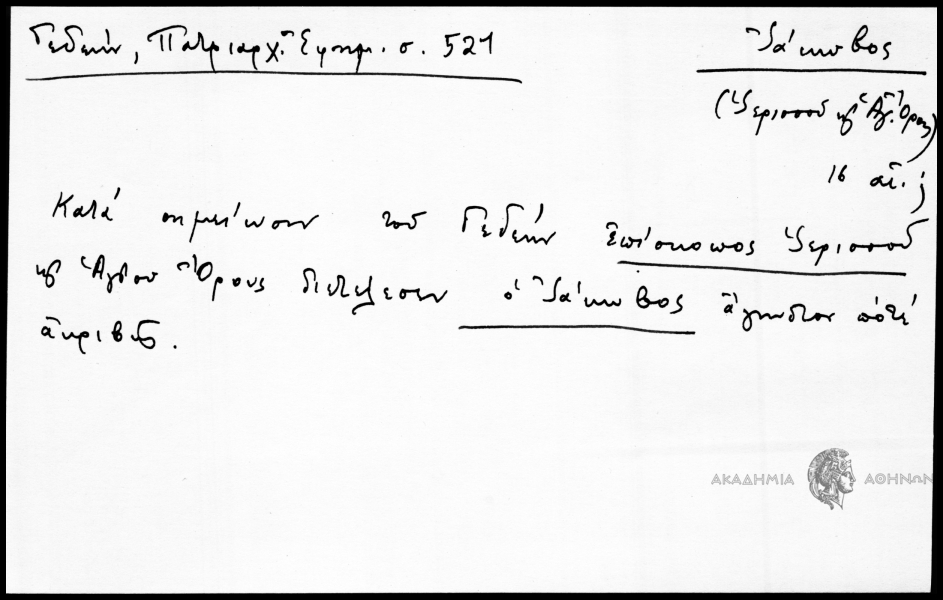 Γεδεών, Πατριαρχ. Ἐφημ. σ. 521
Ἰάκωβος
(Ἱερισσοῦ κ' Ἁγ. Ὄρους)
16 αἰ. ;
Κατά σημείωσιν τοῦ Γεδεών Ἐπίσκοπος Ἱερισσοῦ
κ' Ἁγίου Ὄρους διετέλεσεν ὁ Ἰάκωβος ἄγνωστον πότε
ἀκριβῶς.
ΑΚΑΔΗΜΙΑ ΑΘΗΝΩΝ